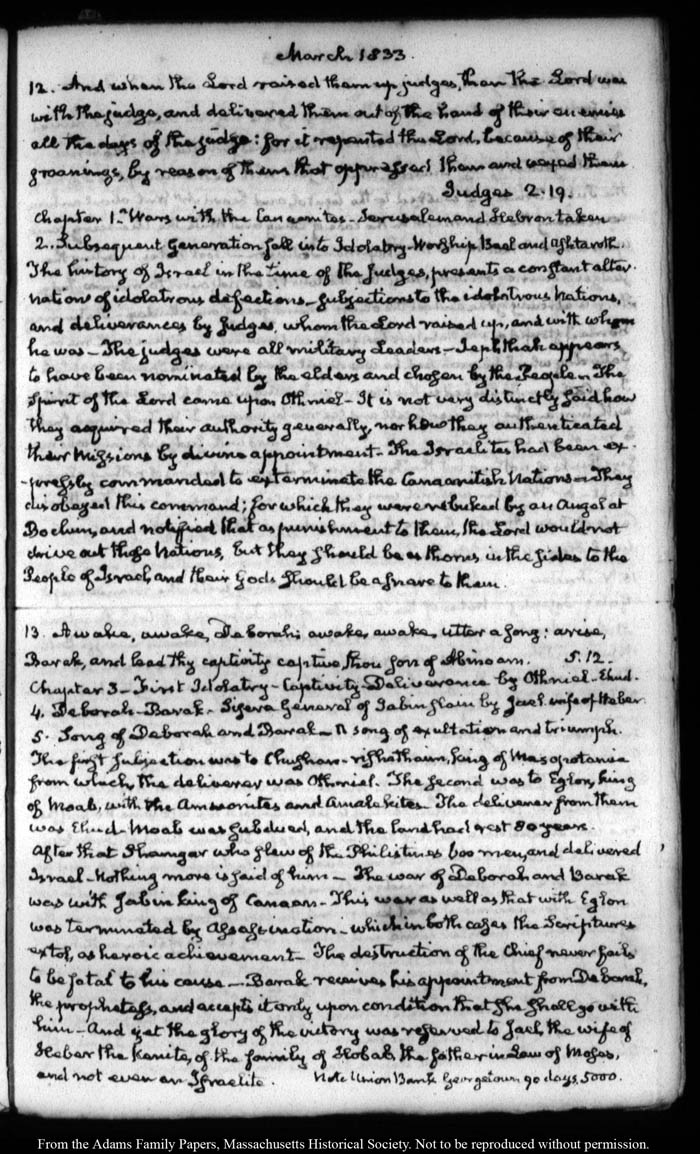 March 1833.
12. And when the Lord raised them up judges, then the Lord was
with the judge, and delivered them out of the hand of their enemies
all the days of the judge: for it repented the Lord, because of their
groanings, by reason of them that oppressed them and vexed them
Judges 2.19.
Chapter 1. Wars with the Canaanites - Jerusalem and Hebron taken
2. Subsequent Generation fall into Idolatry - Worship Baal and Ashtaroth.
The history of Israel in the time of the Judges, presents a constant alter-
nation of idolatrous defections - subjections to the idolatrous Nations,
and deliverances by Judges, whom the Lord raised up, and with whom
he was - The judges were all military Leaders - Jephthah appears
to have been nominated by the elders and chosen by the People - The
Spirit of the Lord came upon Othniel - It is not very distinctly said how
they acquired their authority generally, nor how they authenticated
their Missions by divine appointment - The Israelites had been ex-
-pressly commanded to exterminate the Canaanitish Nations - They
disobeyed this command; for which they were rebuked by an Angel at
Bochim, and notified that as punishment to them, the Lord would not
drive out those Nations, but they should be as thorns in the sides to the
People of Israel, and their Gods should be a snare to them.
13. Awake, awake, Deborah; awake, awake, utter a song: arise,
Barak, and lead thy captivity captive, thou son of Abinoam. 5.12.
Chapter 3 - First Idolatry - Captivity - Deliverance by Othniel - Ehud.
4. Deborah - Barak - Sisera General of Jabin slain by Jael wife of Heber
5. Song of Deborah and Barak - A song of exultation and triumph.
The first subjection was to Chushan-rishathaim, king of Mesopotamia
from which, the deliverer was Othniel. The second was to Eglon, king
of Moab, with the Ammonites and Amalekites - The deliverer from them
was Ehud - Moab was subdued, and the land had rest 80 years.
After that Shamgar who slew of the Philistines 600 men, and delivered
Israel - Nothing more is said of him - The war of Deborah and Barak
was with Jabin king of Canaan - This war as well as that with Eglon
was terminated by Assassination - which in both cases the Scriptures
extol, as heroic achievement - The destruction of the Chief never fails
to be fatal to his cause - Barak receives his appointment from Deborah,
the prophetess, and accepts it only upon condition that she shall go with
him - And yet the glory of the victory was reserved to Jael, the wife of
Heber the Kenite, of the family of Hobab the father in Law of Moses,
and not even an Israelite. Note Union Bank Georgetown 90 days. 5000.
From the Adams Family Papers, Massachusetts Historical Society. Not to be reproduced without permission.